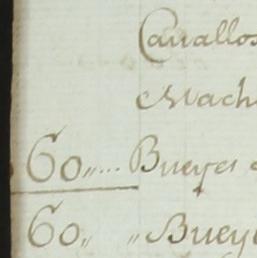 Cavallos
Mach
60,,... Bueyes
60,, ,,Buey